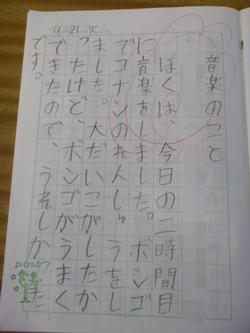 9.21.火
音楽のこと
ぼくは、今日の二時間目
に音楽をしました。ボンゴ
でコナンのれんしゅうをし
ました。大だいこがしたか
ったけど、ボンゴがうまく
できたので、うれしかった
です。